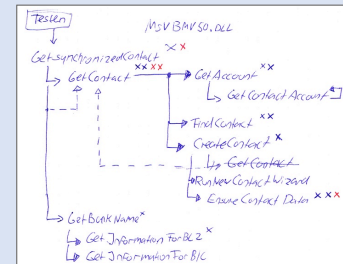 Testen
MSVBMV50.DLL
Get synchronizedContact
Get Contact
Get Account
Get Contact Account
Find Contact
Create Contact
Get Contact
Run New Contact Wizard
Ensure Contact Data
Get Bank Name
Get Information For BLZ
Get Information For BIC